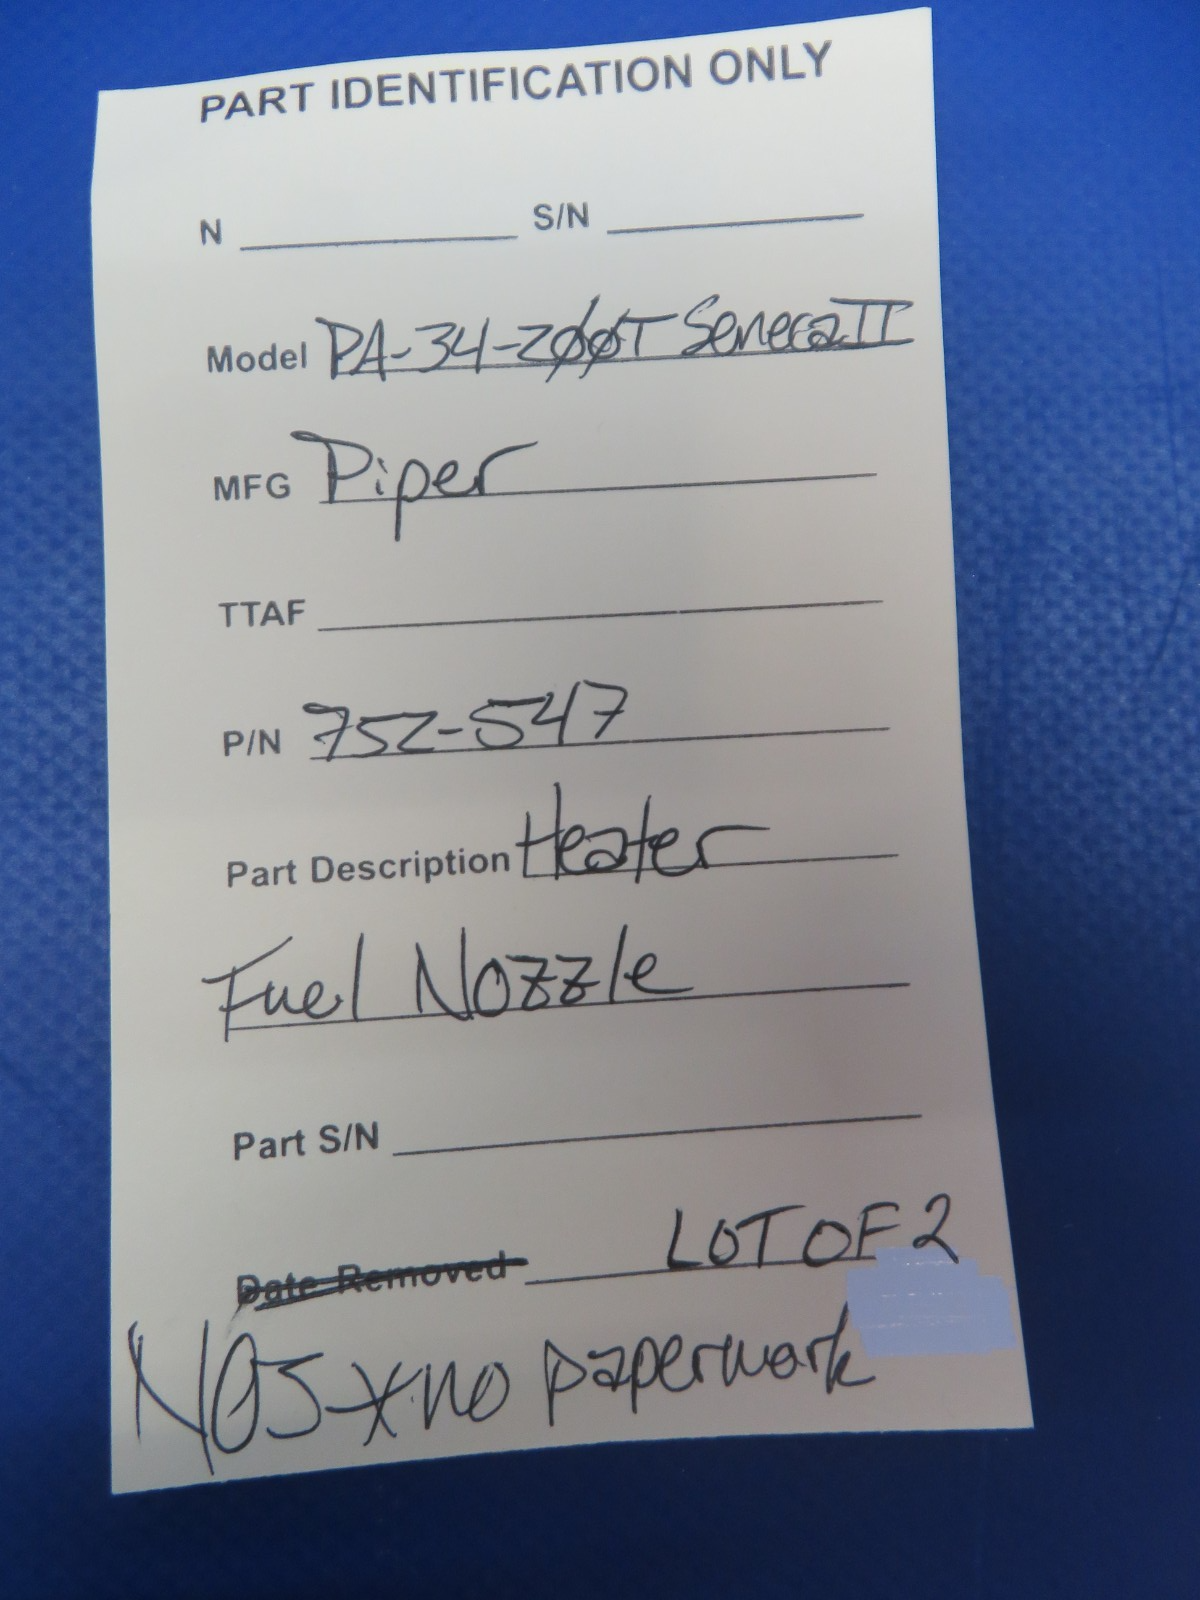 PART IDENTIFICATION ONLY
N S/N
Model PA-34-200T Seneca II
MFG Piper
TTAF
P/N 752-547
Part Description Heater
Fuel Nozzle
Part S/N
Date Removed LOT OF 2
NOS * no paperwork